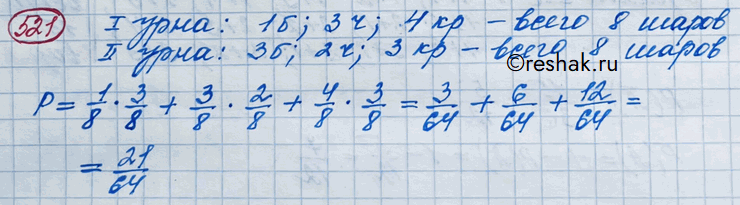 521 I урна: 1б; 3ч; 4 кр – всего 8 шаров
II урна: 3б; 2ч; 3 кр – всего 8 шаров
©reshak.ru
P = 1/8 · 3/8 + 3/8 · 2/8 + 4/8 · 3/8 = 3/64 + 6/64 + 12/64 =
= 21/64